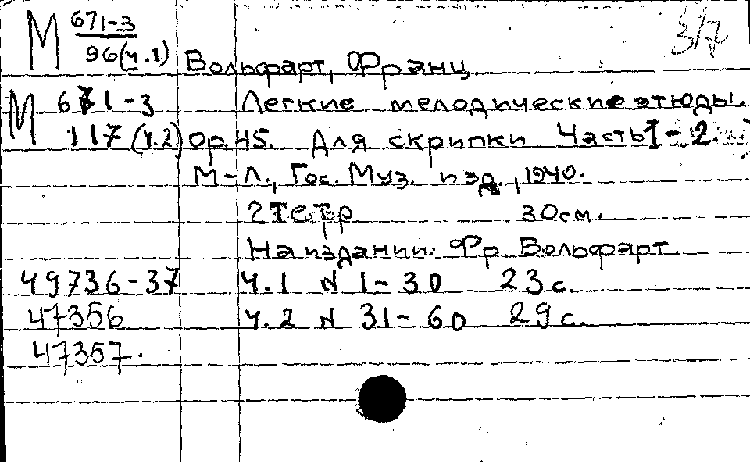 М 671-3
96(ч.1) Вольфарт, Франц
М 671-3 Легкие мелодические этюды.
117 (ч.2) ор. 45. Для скрипки Часть 1-2.
М-Л., Гос. Муз. изд., 1940.
2 тетр 30см.
На издании: Фр. Вольфарт
49736-37 ч.1 N 1-30 23 с.
47356 ч.2 N 31-60 29 с.
47357.